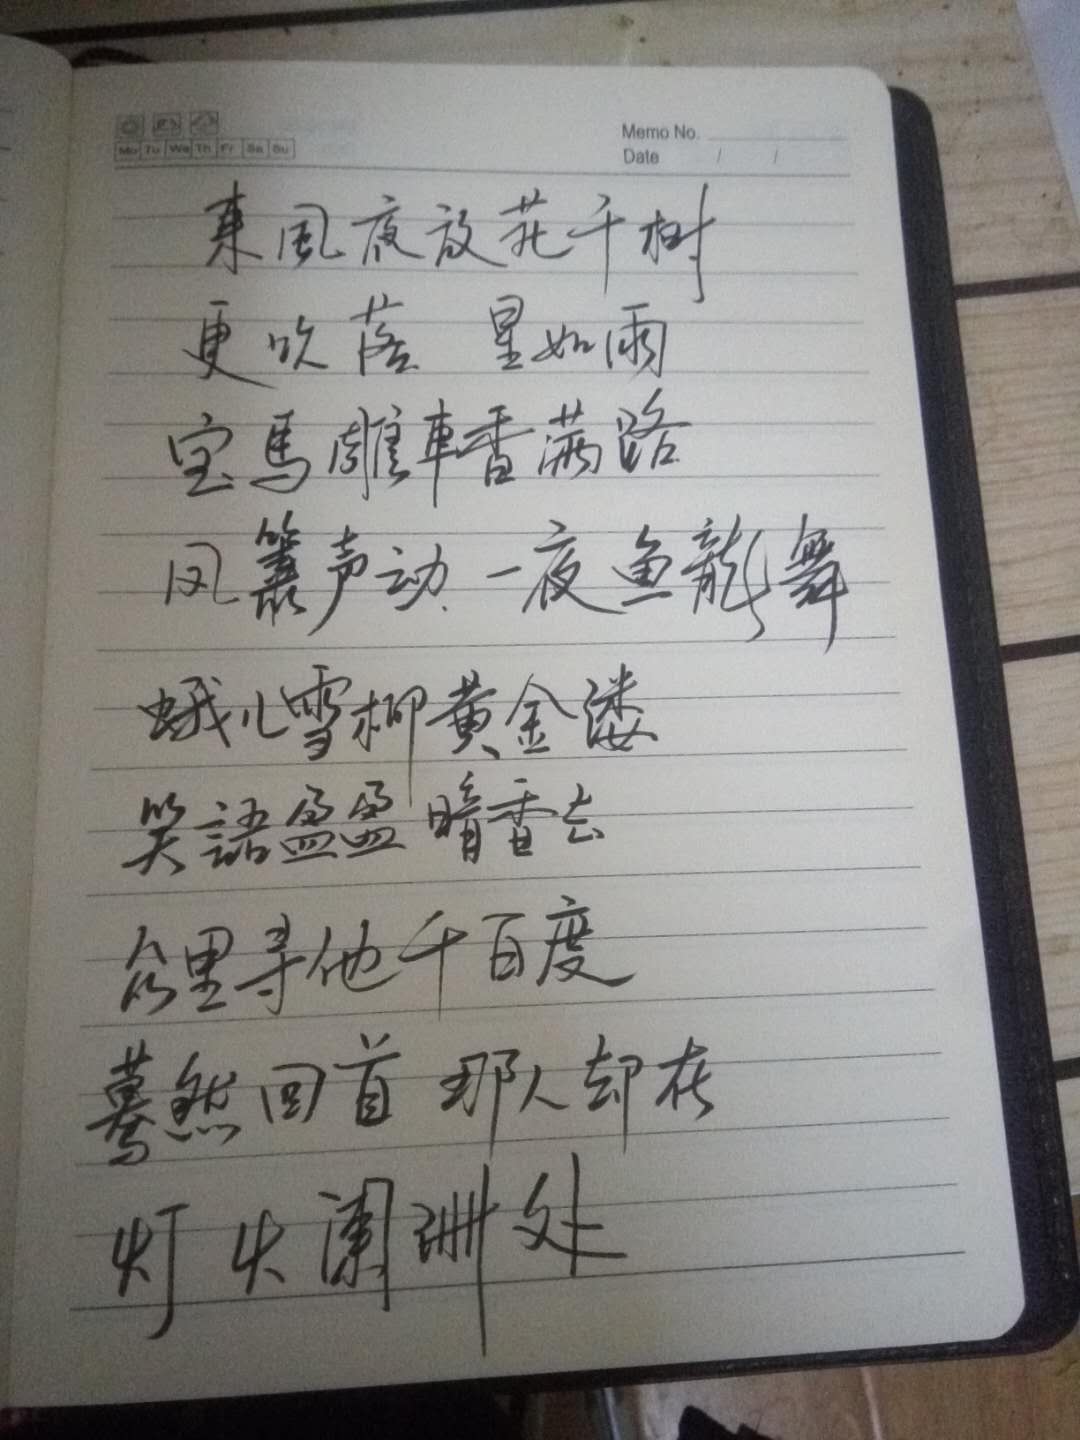 Memo No.
Mo Tu We Th Fr Sa Su
Date / /
東風夜放花千树
更吹落 星如雨
宝馬雕車香满路
风簫声动 一夜鱼龍舞
蛾儿雪柳黄金缕
笑語盈盈 暗香去
众里寻他千百度
蓦然回首 那人却在
灯火阑珊处